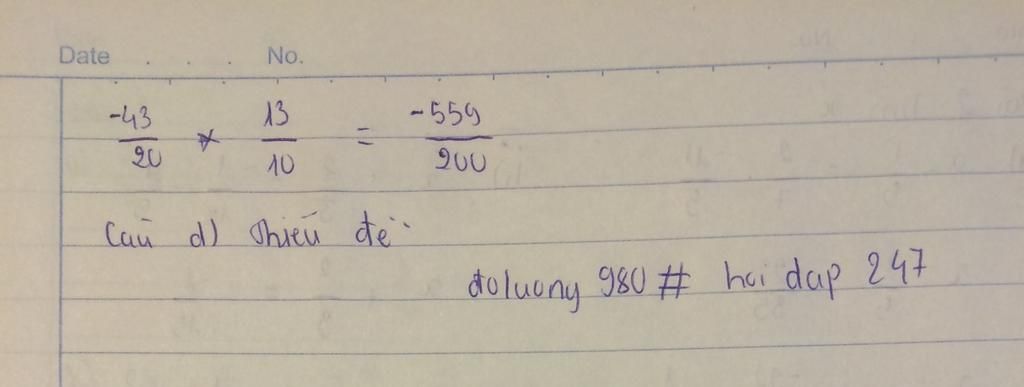 Date . . . No.
-43/20 * 13/10 = -559/200
Câu d) thiếu đề
doluony 980 # hoi dap 247